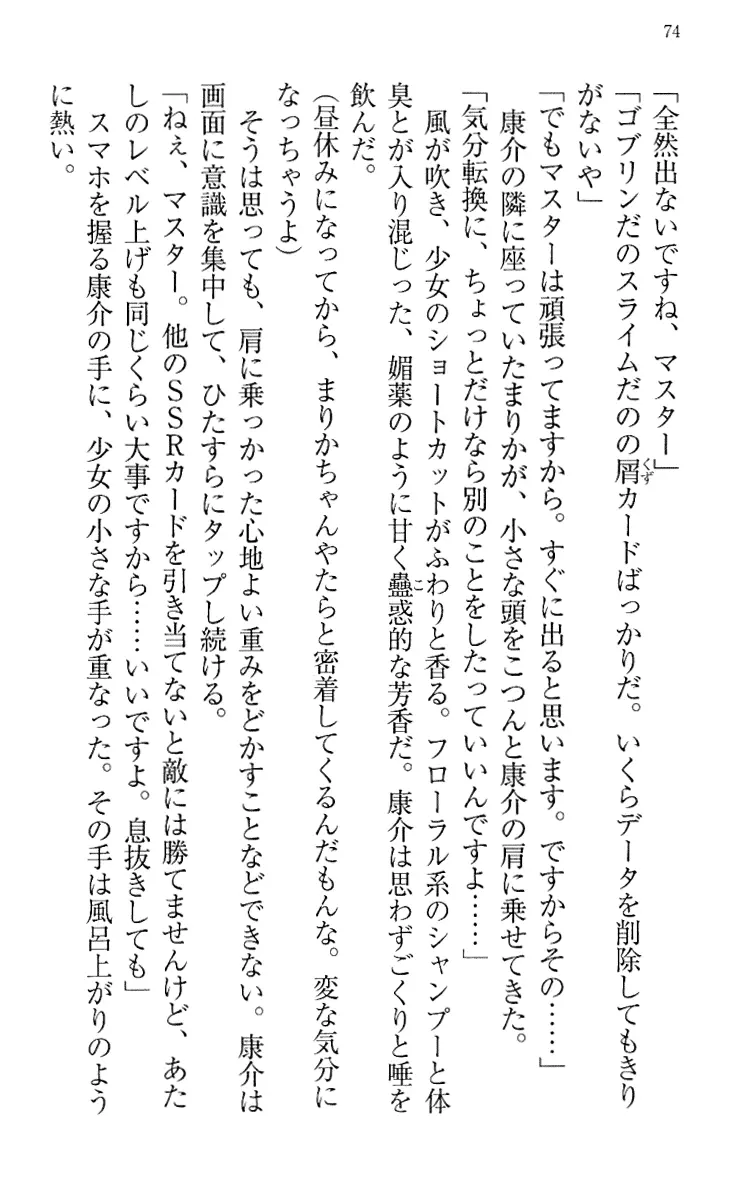 74
「全然出ないですね、マスター」
「ゴブリンだのスライムだのの屑カードばっかりだ。いくらデータを削除してもきり
がないや」
「でもマスターは頑張ってますから。すぐに出ると思います。ですからその……」
康介の隣に座っていたまりかが、小さな頭をこつんと康介の肩に乗せてきた。
「気分転換に、ちょっとだけなら別のことをしたっていいんですよ……」
風が吹き、少女のショートカットがふわりと香る。フローラル系のシャンプーと体
臭とが入り混じった、媚薬のように甘く蠱惑的な芳香だ。康介は思わずごくりと唾を
飲んだ。
（昼休みになってから、まりかちゃんやたらと密着してくるんだもんな。変な気分に
なっちゃうよ）
そうは思っても、肩に乗っかった心地よい重みをどかすことなどできない。康介は
画面に意識を集中して、ひたすらにタップし続ける。
「ねぇ、マスター。他のＳＳＲカードを引き当てないと敵には勝てませんけど、あた
しのレベル上げも同じくらい大事ですから……いいですよ。息抜きしても」
スマホを握る康介の手に、少女の小さな手が重なった。その手は風呂上がりのよう
に熱い。
くず
こ